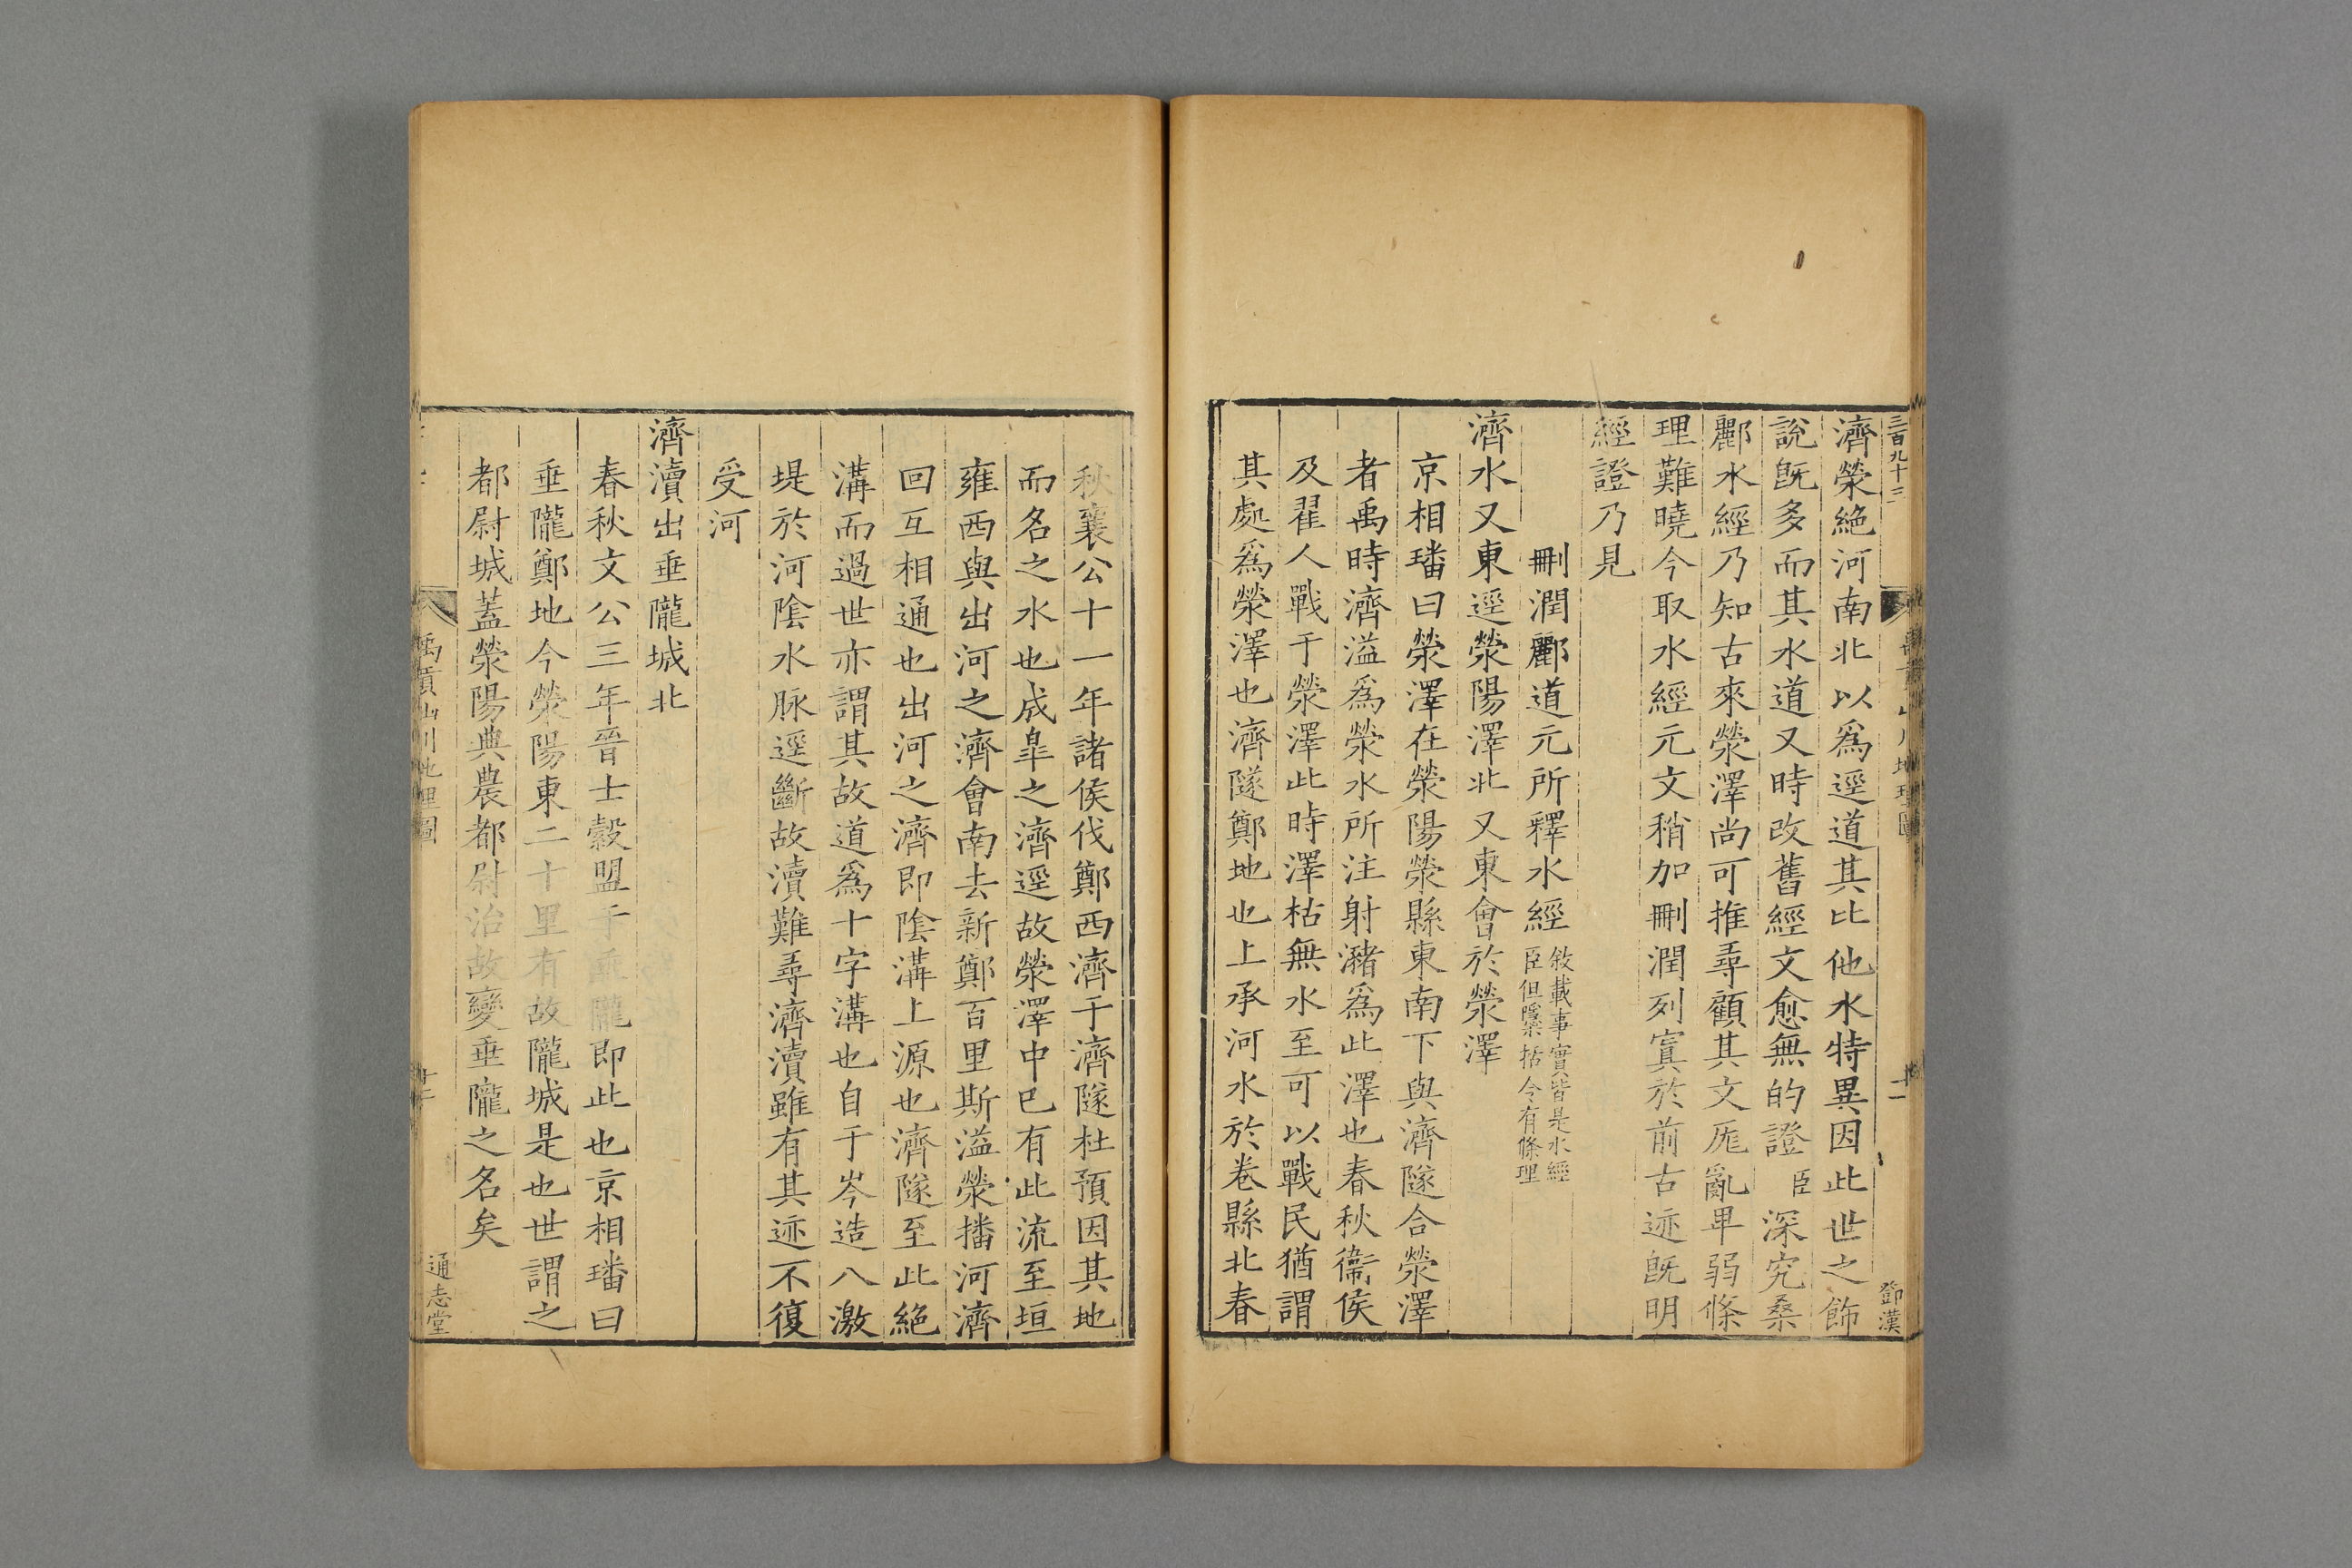 三百九十三
鄧漢
濟滎絶河南北以爲逕道其比他水特異因此世之飾
說旣多而其水道又時改舊經文愈無的證臣深究桑
酈水經乃知古來滎澤尚可推尋顧其文厖亂卑弱條
理難曉今取水經元文稍加刪潤列寘於前古迹旣明
經證乃見
刪潤酈道元所釋水經敘載事實皆是水經
臣但隱括今有條理
濟水又東逕滎陽澤北又東會於滎澤
京相璠曰滎澤在滎陽滎縣東南下與濟隧合滎澤
者禹時濟溢爲滎水所注射瀦爲此澤也春秋衞侯
及翟人戰于滎澤此時澤枯無水至可以戰民猶謂
其處爲滎澤也濟隧鄭地也上承河水於卷縣北春
秋襄公十一年諸侯伐鄭西濟于濟隧杜預因其地
而名之水也成臯之濟逕故滎澤中已有此流至垣
雍西與出河之濟會南去新鄭百里斯溢滎播河濟
回互相通也出河之濟即陰溝上源也濟隧至此絶
溝而過世亦謂其故道爲十字溝也自于岑造八激
堤於河陰水脉逕斷故瀆難尋濟瀆雖有其迹不復
受河
濟瀆出垂隴城北
春秋文公三年晉士縠盟于垂隴即此也京相璠曰
垂隴鄭地今滎陽東二十里有故隴城是也世謂之
都尉城蓋滎陽典農都尉治故變垂隴之名矣
禹貢山川地理圖
通志堂